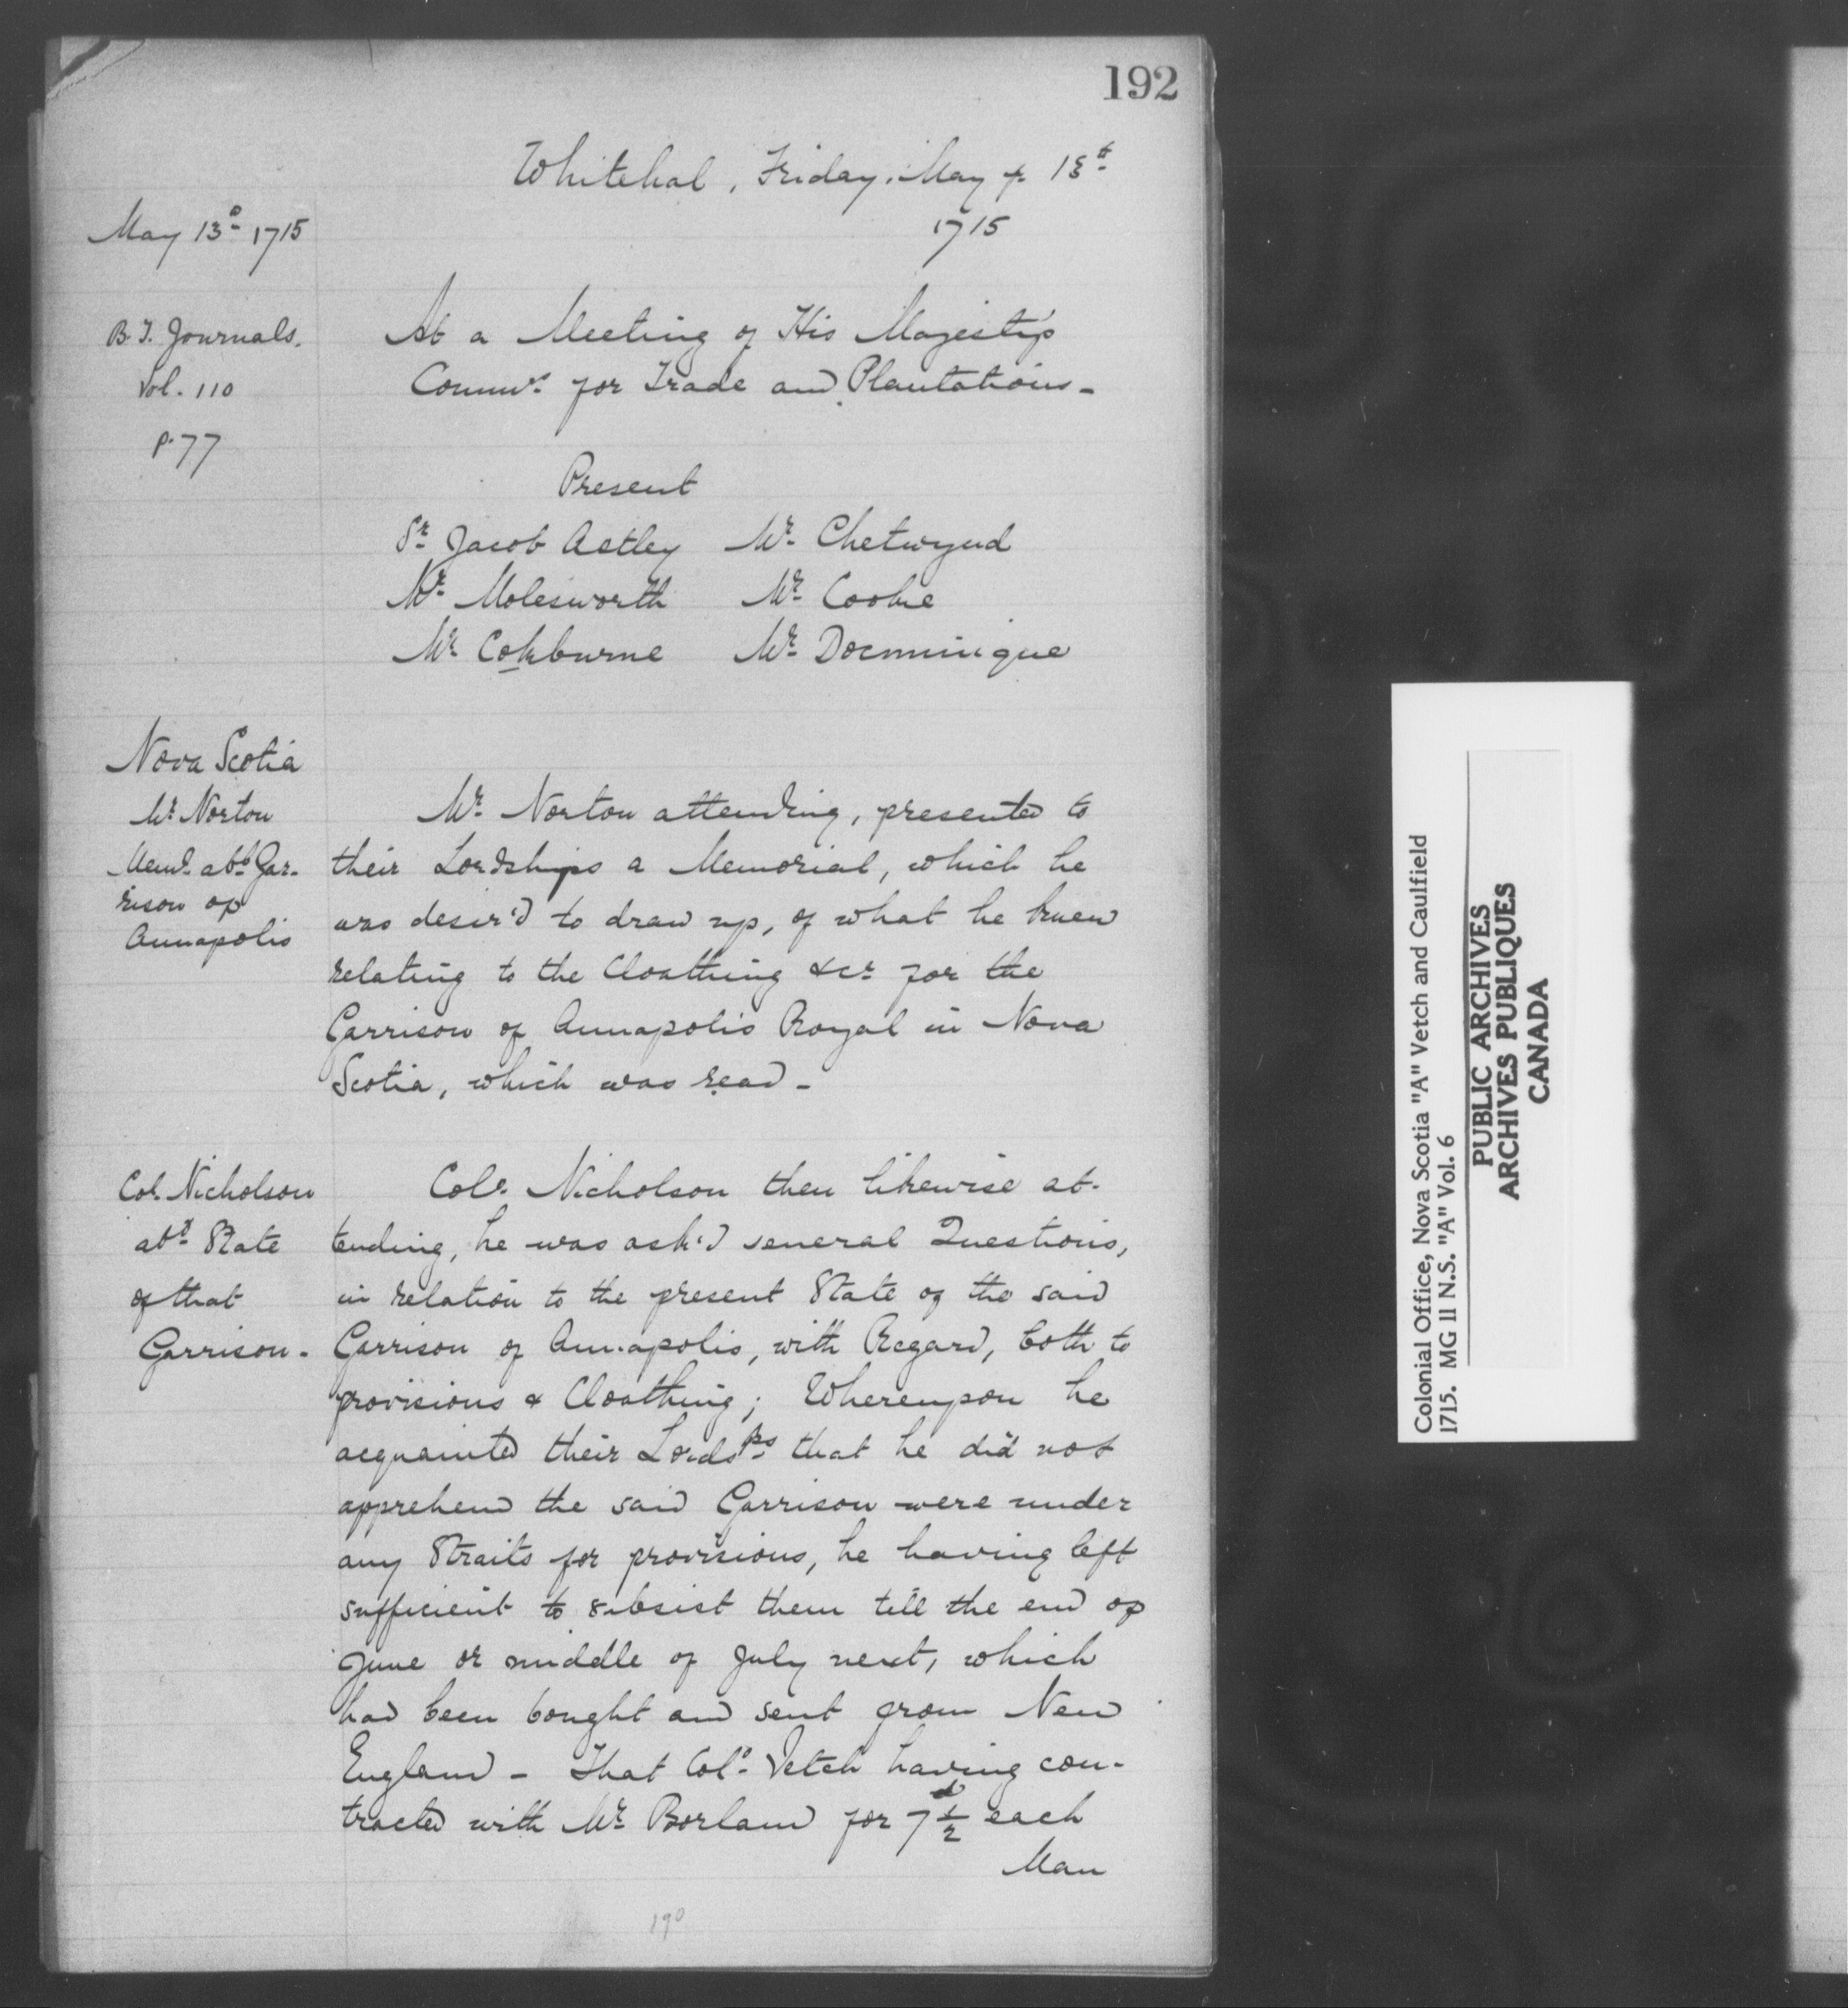 192
Whitehal, Friday, May ye 13th
1715
May 13o 1715
B.T. Journals.
Vol. 110
p. 77
At a Meeting of His Majesty's
Commrs for Trade and Plantations -
Present
Sr Jacob Astley Mr Chetwynd
Mr Molesworth Mr Cooke
Mr Cokburne Mr Docminique
Nova Scotia
Mr Norton
Meml abt Gar-
rison of
Annapolis
Mr Norton attending, presented to
their Lordships a Memorial, which he
was desir'd to draw up, of what he knew
relating to the Cloathing &cr for the
Garrison of Annapolis Royal in Nova
Scotia, which was read -
Col. Nicholson
abt State
of that
Garrison -
Colo. Nicholson then likewise at-
tending, he was ask'd several Questions,
in relation to the present State of the said
Garrison of Annapolis, with Regard, both to
provisions & Cloathing; Whereupon he
acquainted their Lordsps that he did not
apprehend the said Garrison were under
any Straits for provisions, he having left
sufficient to subsist them till the end of
June or middle of July next, which
had been bought and sent from New
England - That Colo Vetch having con-
tracted with Mr Borland for 7d 1/2 each
Man
190
Colonial Office, Nova Scotia "A" Vetch and Caulfield
1715. MG 11 N.S. "A" Vol. 6
PUBLIC ARCHIVES
ARCHIVES PUBLIQUES
CANADA